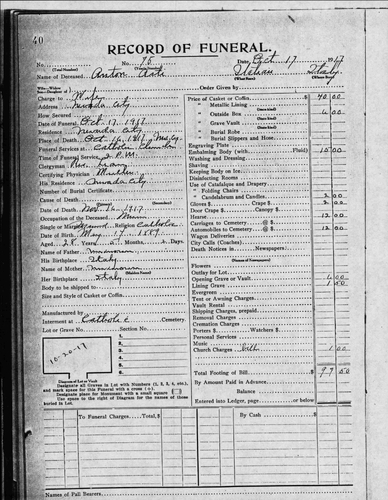 40
RECORD OF FUNERAL.
No. 75 Date, Oct 17 191
(Total Number) (Yearly Number)
Name of Deceased Anton Italian Italy
(What Race) (Where Born)
Wife—Widow
Son—Daughter of
Order Given by
Charge to Wife
Address Nevada City
How Secured
Date of Funeral Oct 17
Residence Nevada City
Place of Death
Funeral Services at Catholic Church
Time of Services 2 P.M.
Clergyman Rev.
Certifying Physician
His Residence Nevada City
Number of Burial Certificate
Cause of Death
Date of Death 1917
Occupation of the Deceased Miner
Single or Married Religion Catholic
Date of Birth May 14 1889
Aged 28 Years 5 Months 2 Days
Name of Father Unknown
His Birthplace Italy
Name of Mother Unknown
(Maiden Name)
Her Birthplace Italy
Body to be shipped to
Size and Style of Casket or Coffin
Manufactured by
Interment at Catholic Cemetery.
Lot or Grave No. Section No.
1
2
3
4
5
6
10-20-17
Diagram of Lot or Vault
Designate all Graves in Lot with Numbers (1, 2, 3, 4, etc.),
and mark space for this Funeral with a cross (+)
Designate place for Monument with a small square
Use space to the right of Diagram for the names of those
buried in Lot.
Price of Casket or Coffin $ 40 00
" Metallic Lining
" Outside Box 6 00
" Grave Vault
" Burial Robe
" Burial Slippers and Hose
Engraving Plate
Embalming Body (with Fluid) 15 00
Washing and Dressing
Shaving
Keeping Body on Ice
Disinfecting Rooms
Use of Catafalque and Drapery
" Folding Chairs
" Candelabrum and Candles 2 00
Gloves $ Crape $ 2 00
Door Crape $ Canopy $
Hearse 12 00
Carriages to Cemetery @ $
Automobiles to Cemetery @ $ 12 00
Wagon Deliveries
City Calls (Coaches)
Death Notices in Newspapers
Flowers
Outlay for Lot
Opening Grave or Vault
Lining Grave 1
Evergreen
Tent or Awning Charges
Vault Rental
Shipping Charges, prepaid
Removal Charges
Cremation Charges
Porters $ Watchers $
Personal Services
Music
Church Charges bill 1 00
Total Footing of Bill $
By Amount Paid in Advance
Balance
Entered into Ledger, page or below.
To Funeral Charges Total, $ By Cash $
Names of Pall Bearers